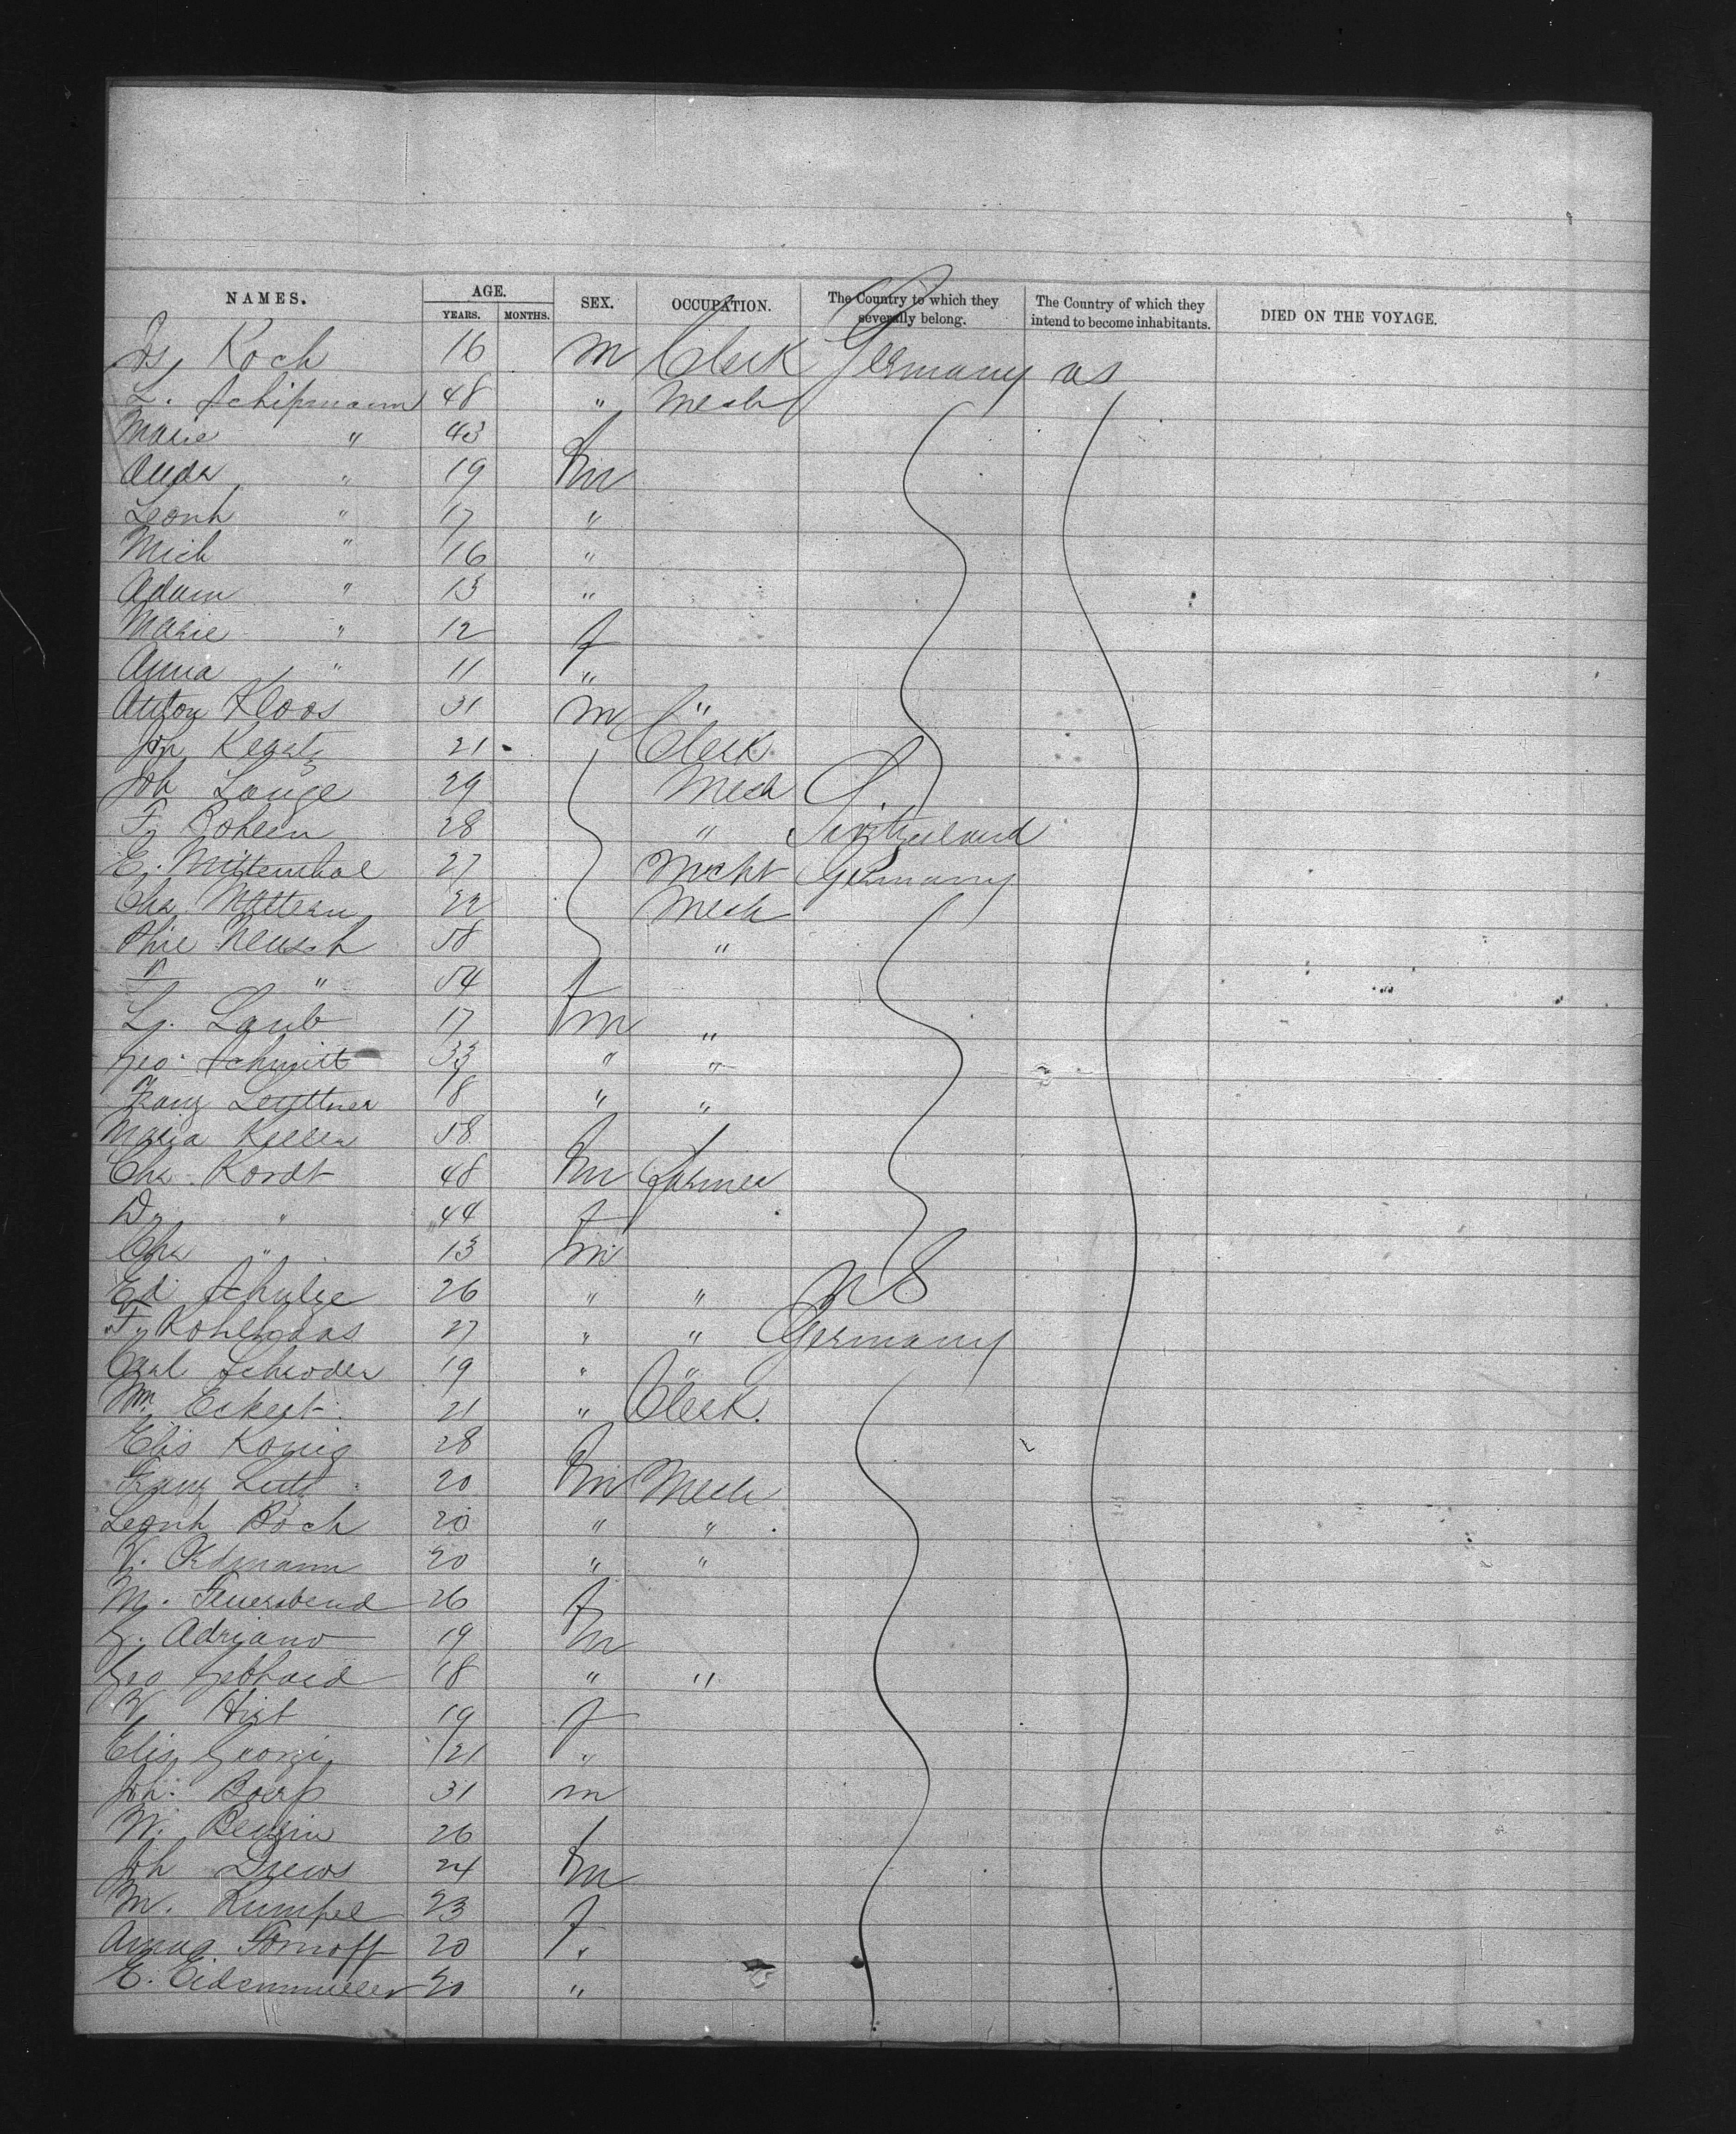 NAMES. AGE. SEX. OCCUPATION. The Country to which they severally belong. The Country of which they intend to become inhabitants. DIED ON THE VOYAGE.
YEARS. MONTHS.
Jos Koch 16 m Clerk Germany us
L. Schipmann 48 " Mech
Marie " 43 f
19 m
Leonh " 17 "
Mich " 16 "
Adam " 13 "
Marie " 12 f
Anna " 11 "
Anton Kloos 31 m "
Joh 21 Clerk
Joh Lange 29 Mech
28 " Switzerland
E. Mittenthal 27 Mcht Germany
Cha 22 Mech
Phil Neusch 58 "
" 54 f
Lg. Laub 17 m "
Geo. Schmitt 33 " "
Franz Leyttner 18 " "
Maria Keller 58 f
Cha. Kordt 48 m Farmer
" 44 f
Cha " 13 m
Ed Schulze 26 " " US
Kohlhaas 27 " " Germany
Carl Schroder 19 " "
Wm. Eckert 21 " Clerk.
Elis Konig 28 f
Franz Lutz 20 m Mech
Leonh Boch 20 " "
20 " "
M. Feuerabend 26 f
G. Adriano 19 m
Geo Gebhard 18 " "
Hirt 19 f
Elis 21 "
Joh. 31 m
26 f
Joh Drews 24 m
M. Rumpel 23 f
Anna 20 "
E. Eidenmuller 20 "